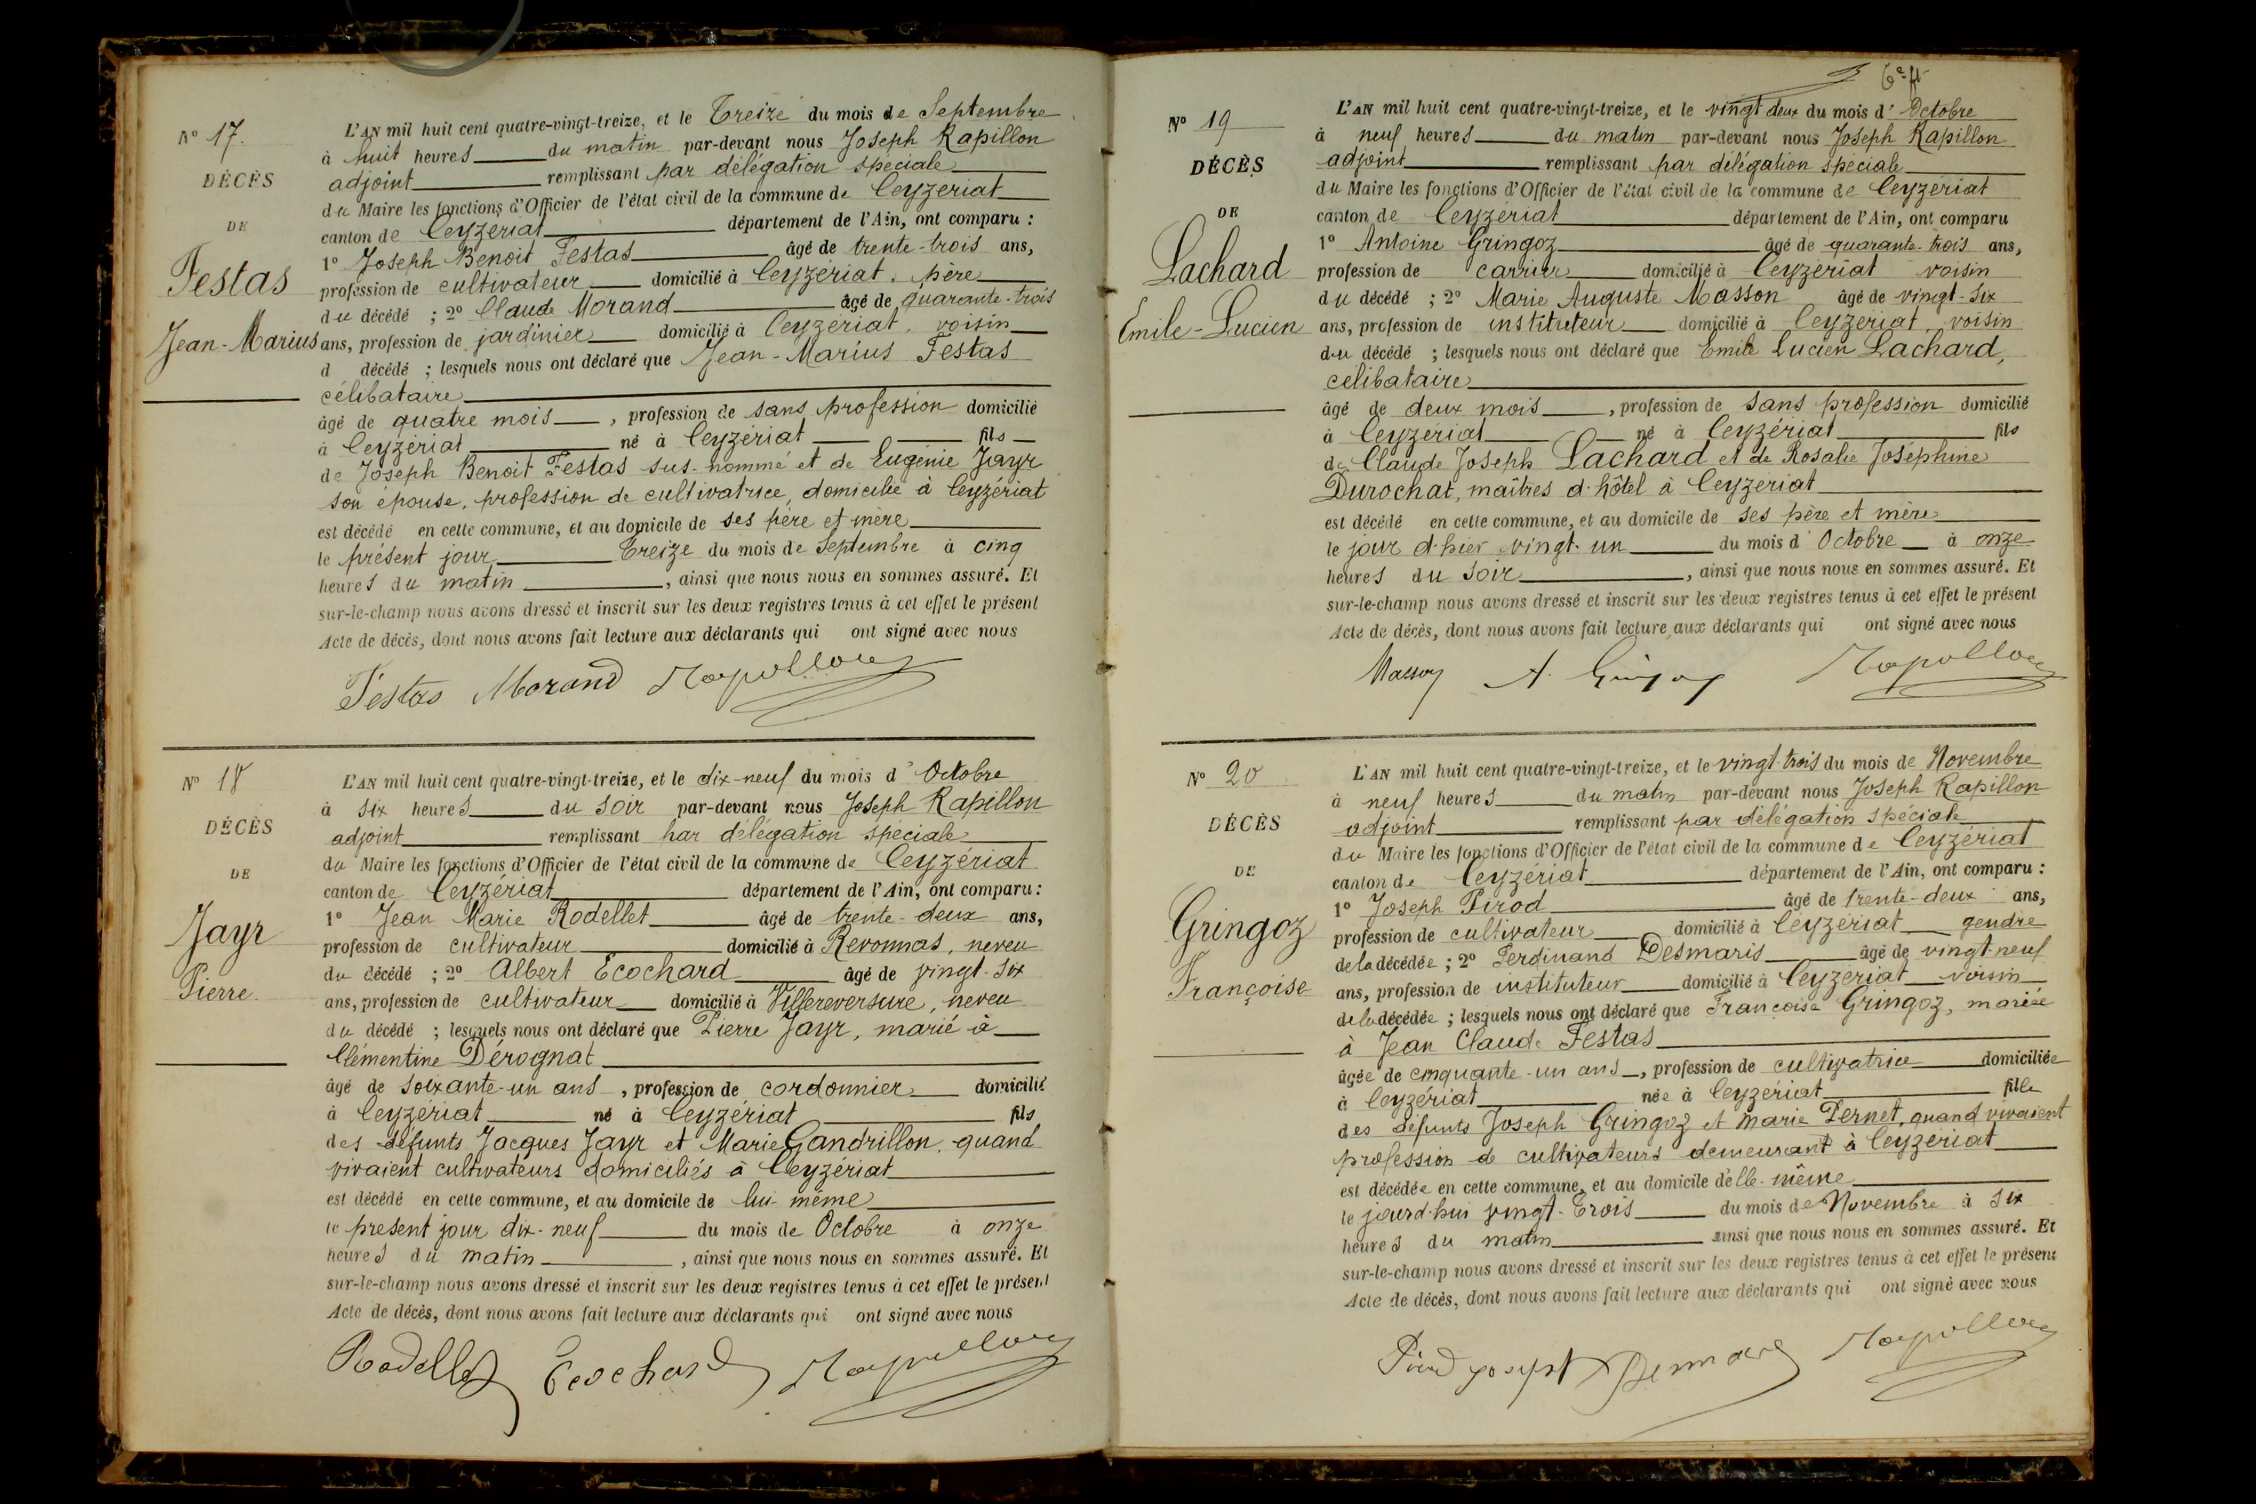 Nº 17.
DÉCÈS
DE
Festas
Jean-Marius
L'AN mil huit cent quatre-vingt-treize, et le Treize du mois de Septembre
à huit heures du matin par-devant nous Joseph Rapillon
adjoint remplissant par délégation spéciale
du Maire les fonctions d'Officier de l'état civil de la commune de Ceyzériat
canton de Ceyzériat département de l'Ain, ont comparu :
1º Joseph Benoit Festas âgé de trente-trois ans,
profession de cultivateur domicilié à Ceyzériat, père
du décédé ; 2º Claude Morand âgé de quarante-trois
ans, profession de jardinier domicilié à Ceyzériat, voisin
d décédé ; lesquels nous ont déclaré que Jean-Marius Festas
célibataire
âgé de quatre mois, profession de sans profession domicilié
à Ceyzériat né à Ceyzériat fils
de Joseph Benoit Festas sus-nommé et de Eugénie Jayr
son épouse, profession de cultivatrice, domiciliée à Ceyzériat
est décédé en cette commune, et au domicile de ses père et mère
le présent jour Treize du mois de Septembre à cinq
heures du matin, ainsi que nous nous en sommes assuré. Et
sur-le-champ nous avons dressé et inscrit sur les deux registres tenus à cet effet le présent
Acte de décès, dont nous avons fait lecture aux déclarants qui ont signé avec nous
Festas Morand Rapillon
Nº 18
DÉCÈS
DE
Jayr
Pierre
L'AN mil huit cent quatre-vingt-treize, et le dix-neuf du mois d'Octobre
à six heures du soir par-devant nous Joseph Rapillon
adjoint remplissant par délégation spéciale
du Maire les fonctions d'Officier de l'état civil de la commune de Ceyzériat
canton de Ceyzériat département de l'Ain, ont comparu :
1º Jean Marie Rodellet âgé de trente-deux ans,
profession de cultivateur domicilié à Revonnas, neveu
du décédé ; 2º Albert Ecochard âgé de vingt-six
ans, profession de cultivateur domicilié à Villereversure, neveu
du décédé ; lesquels nous ont déclaré que Pierre Jayr, marié à
Clémentine Dérognat
âgé de soixante-un ans, profession de cordonnier domicilié
à Ceyzériat né à Ceyzériat fils
des défunts Jacques Jayr et Marie Gandrillon, quand
vivaient cultivateurs domiciliés à Ceyzériat
est décédé en cette commune, et au domicile de lui-même
le présent jour dix-neuf du mois de Octobre à onze
heures du matin, ainsi que nous nous en sommes assuré. Et
sur-le-champ nous avons dressé et inscrit sur les deux registres tenus à cet effet le présent
Acte de décès, dont nous avons fait lecture aux déclarants qui ont signé avec nous
Rodellet Ecochard Rapillon
Nº 19
DÉCÈS
DE
Lachard
Emile-Lucien
L'AN mil huit cent quatre-vingt-treize, et le vingt deux du mois d'Octobre
à neuf heures du matin par-devant nous Joseph Rapillon
adjoint remplissant par délégation spéciale
du Maire les fonctions d'Officier de l'état civil de la commune de Ceyzériat
canton de Ceyzériat département de l'Ain, ont comparu
1º Antoine Gringoz âgé de quarante-trois ans,
profession de carrier domicilié à Ceyzériat voisin
du décédé ; 2º Marie Auguste Masson âgé de vingt-six
ans, profession de instituteur domicilié à Ceyzeriat, voisin
du décédé ; lesquels nous ont déclaré que Emile Lucien Lachard,
célibataire
âgé de deux mois, profession de sans profession domicilié
à Ceyzériat né à Ceyzériat fils
de Claude Joseph Lachard et de Rosalie Joséphine
Durochat, maîtres d'hôtel à Ceyzeriat
est décédé en cette commune, et au domicile de ses père et mère
le jour d'hier vingt-un du mois d'Octobre à onze
heures du soir, ainsi que nous nous en sommes assuré. Et
sur-le-champ nous avons dressé et inscrit sur les deux registres tenus à cet effet le présent
Acte de décès, dont nous avons fait lecture aux déclarants qui ont signé avec nous
Masson A. Gringoz Rapillon
Nº 20
DÉCÈS
DE
Gringoz
Françoise
L'AN mil huit cent quatre-vingt-treize, et le vingt-trois du mois de Novembre
à neuf heures du matin par-devant nous Joseph Rapillon
adjoint remplissant par délégation spéciale
du Maire les fonctions d'Officier de l'état civil de la commune de Ceyzériat
canton de Ceyzériat département de l'Ain, ont comparu :
1º Joseph Pirod âgé de trente-deux ans,
profession de cultivateur domicilié à Ceyzériat gendre
de la décédée ; 2º Ferdinand Desmaris âgé de vingt-neuf
ans, profession de instituteur domicilié à Ceyzeriat voisin
de la décédée ; lesquels nous ont déclaré que Françoise Gringoz, mariée
à Jean Claude Festas
âgée de cinquante-un ans, profession de cultivatrice domiciliée
à Ceyzériat née à Ceyzériat fille
des défunts Joseph Gringoz et Marie Pernet, quand vivaient
profession de cultivateurs demeurant à Ceyzériat
est décédée en cette commune, et au domicile d'elle-même
le jourd'hui vingt-trois du mois de Novembre à six
heures du matin ainsi que nous nous en sommes assuré. Et
sur-le-champ nous avons dressé et inscrit sur les deux registres tenus à cet effet le présent
Acte de décès, dont nous avons fait lecture aux déclarants qui ont signé avec nous
Pirod joseph Desmaris Rapillon